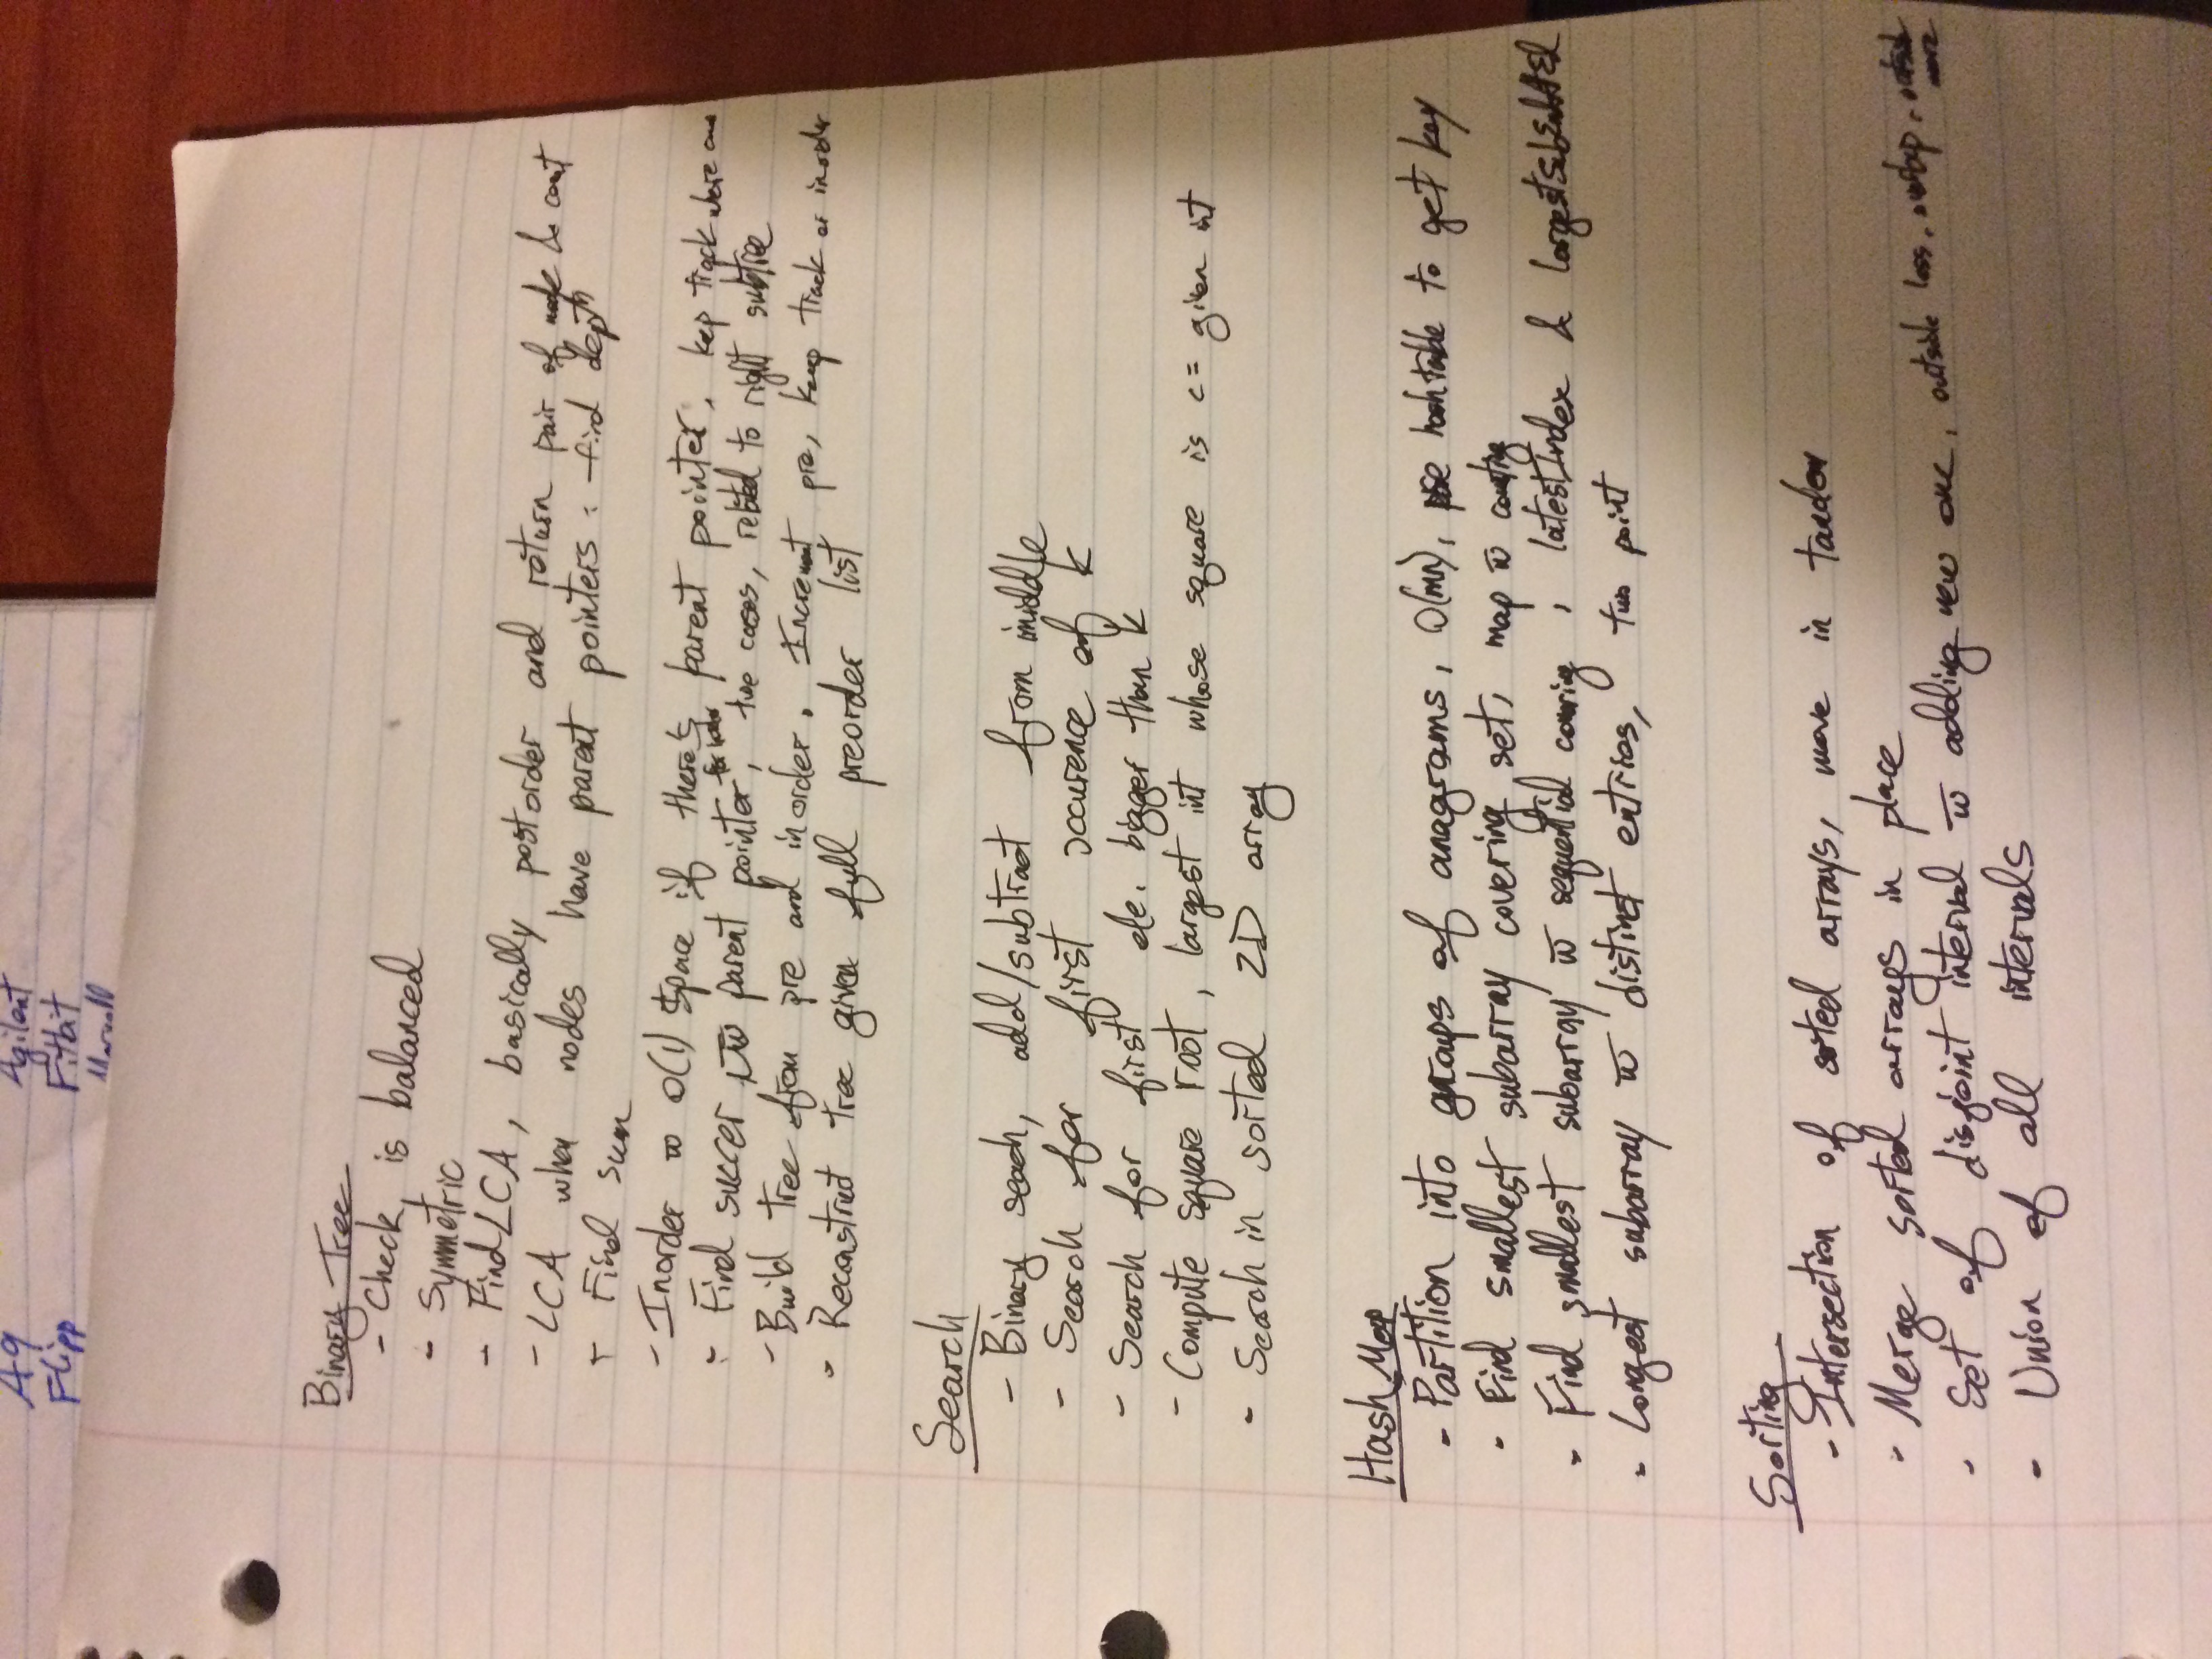 A9 Agilent
Flipp Fitbit
Marvell
Binary Tree
- Check, is balanced
- Symmetric
- Find LCA, basically postorder and return pair of node & count
- LCA when nodes have parent pointers : find depth
- Find sum
- Inorder w O(1) space if there's parent pointer, keep track where
- Find succer w parent pointer, two cases, related to right subtree
- Build tree from pre and inorder. Increment pre, keep track of inorder
- Reconstruct tree given full preorder list
Search
- Binary seach, add/subtract from middle
- Search for first occurence of k
- Search for first ele. bigger than k
- Compute square root, largest int whose square is <= given int
- Search in sorted 2D array
Hash Map
- Partition into groups of anagrams, O(mn), use hashtable to get key
- Find smallest subarray covering set, map w counting
- Find smallest subarray w sequential covering, latestIndex &
- Longest subarray w distinct entries, two point
Sorting
- Intersection of sorted arrays, move in tandem
- Merge sorted arrays in place
- Set of disjoint interval w adding new one, outside less, overlap, outside more
- Union of all intervals